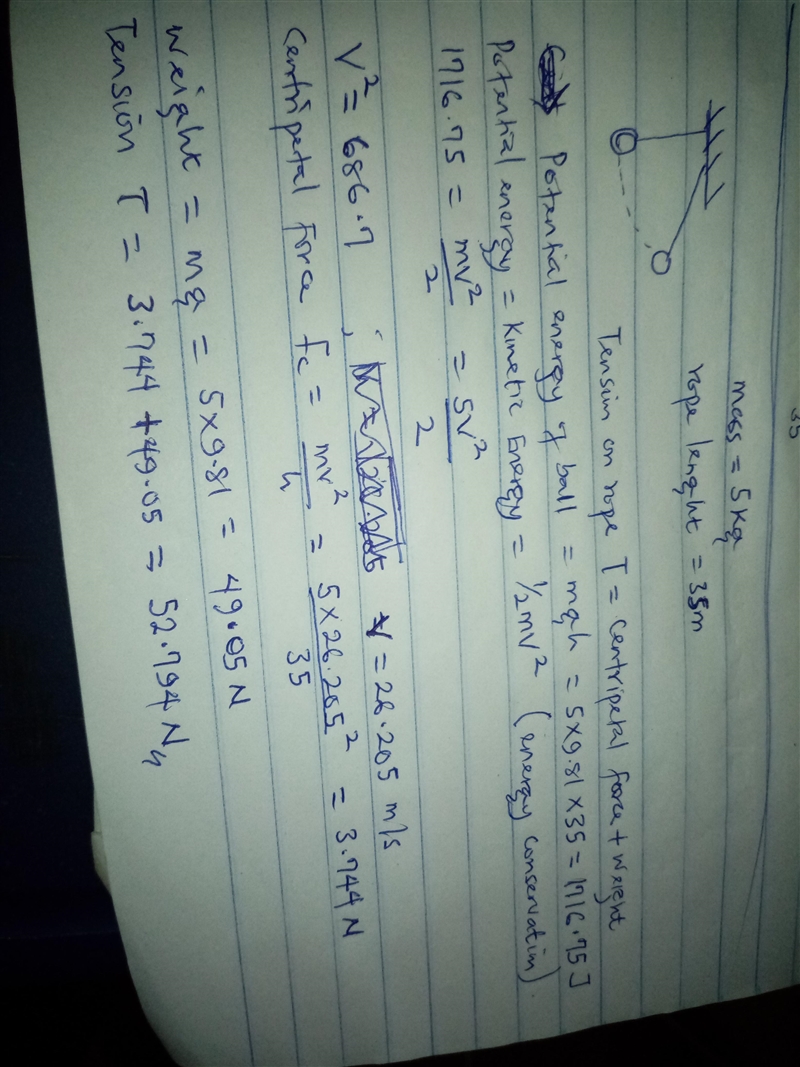 35
mass = 5kg
rope lenght = 35m
Tension on rope T = Centripetal force + Weight
Potential energy of ball = mgh = 5×9.81×35 = 1716.75 J
Potential energy = Kinetic Energy = ½mv² (energy conservation).
1716.75 = mv²/2 = 5v²/2
V² = 686.7, V = 26.205 m/s
Centripetal force Fc = mv²/h = 5×26.205²/35 = 3.744 N
Weight = mg = 5×9.81 = 49.05 N
Tension T = 3.744 + 49.05 = 52.794 N